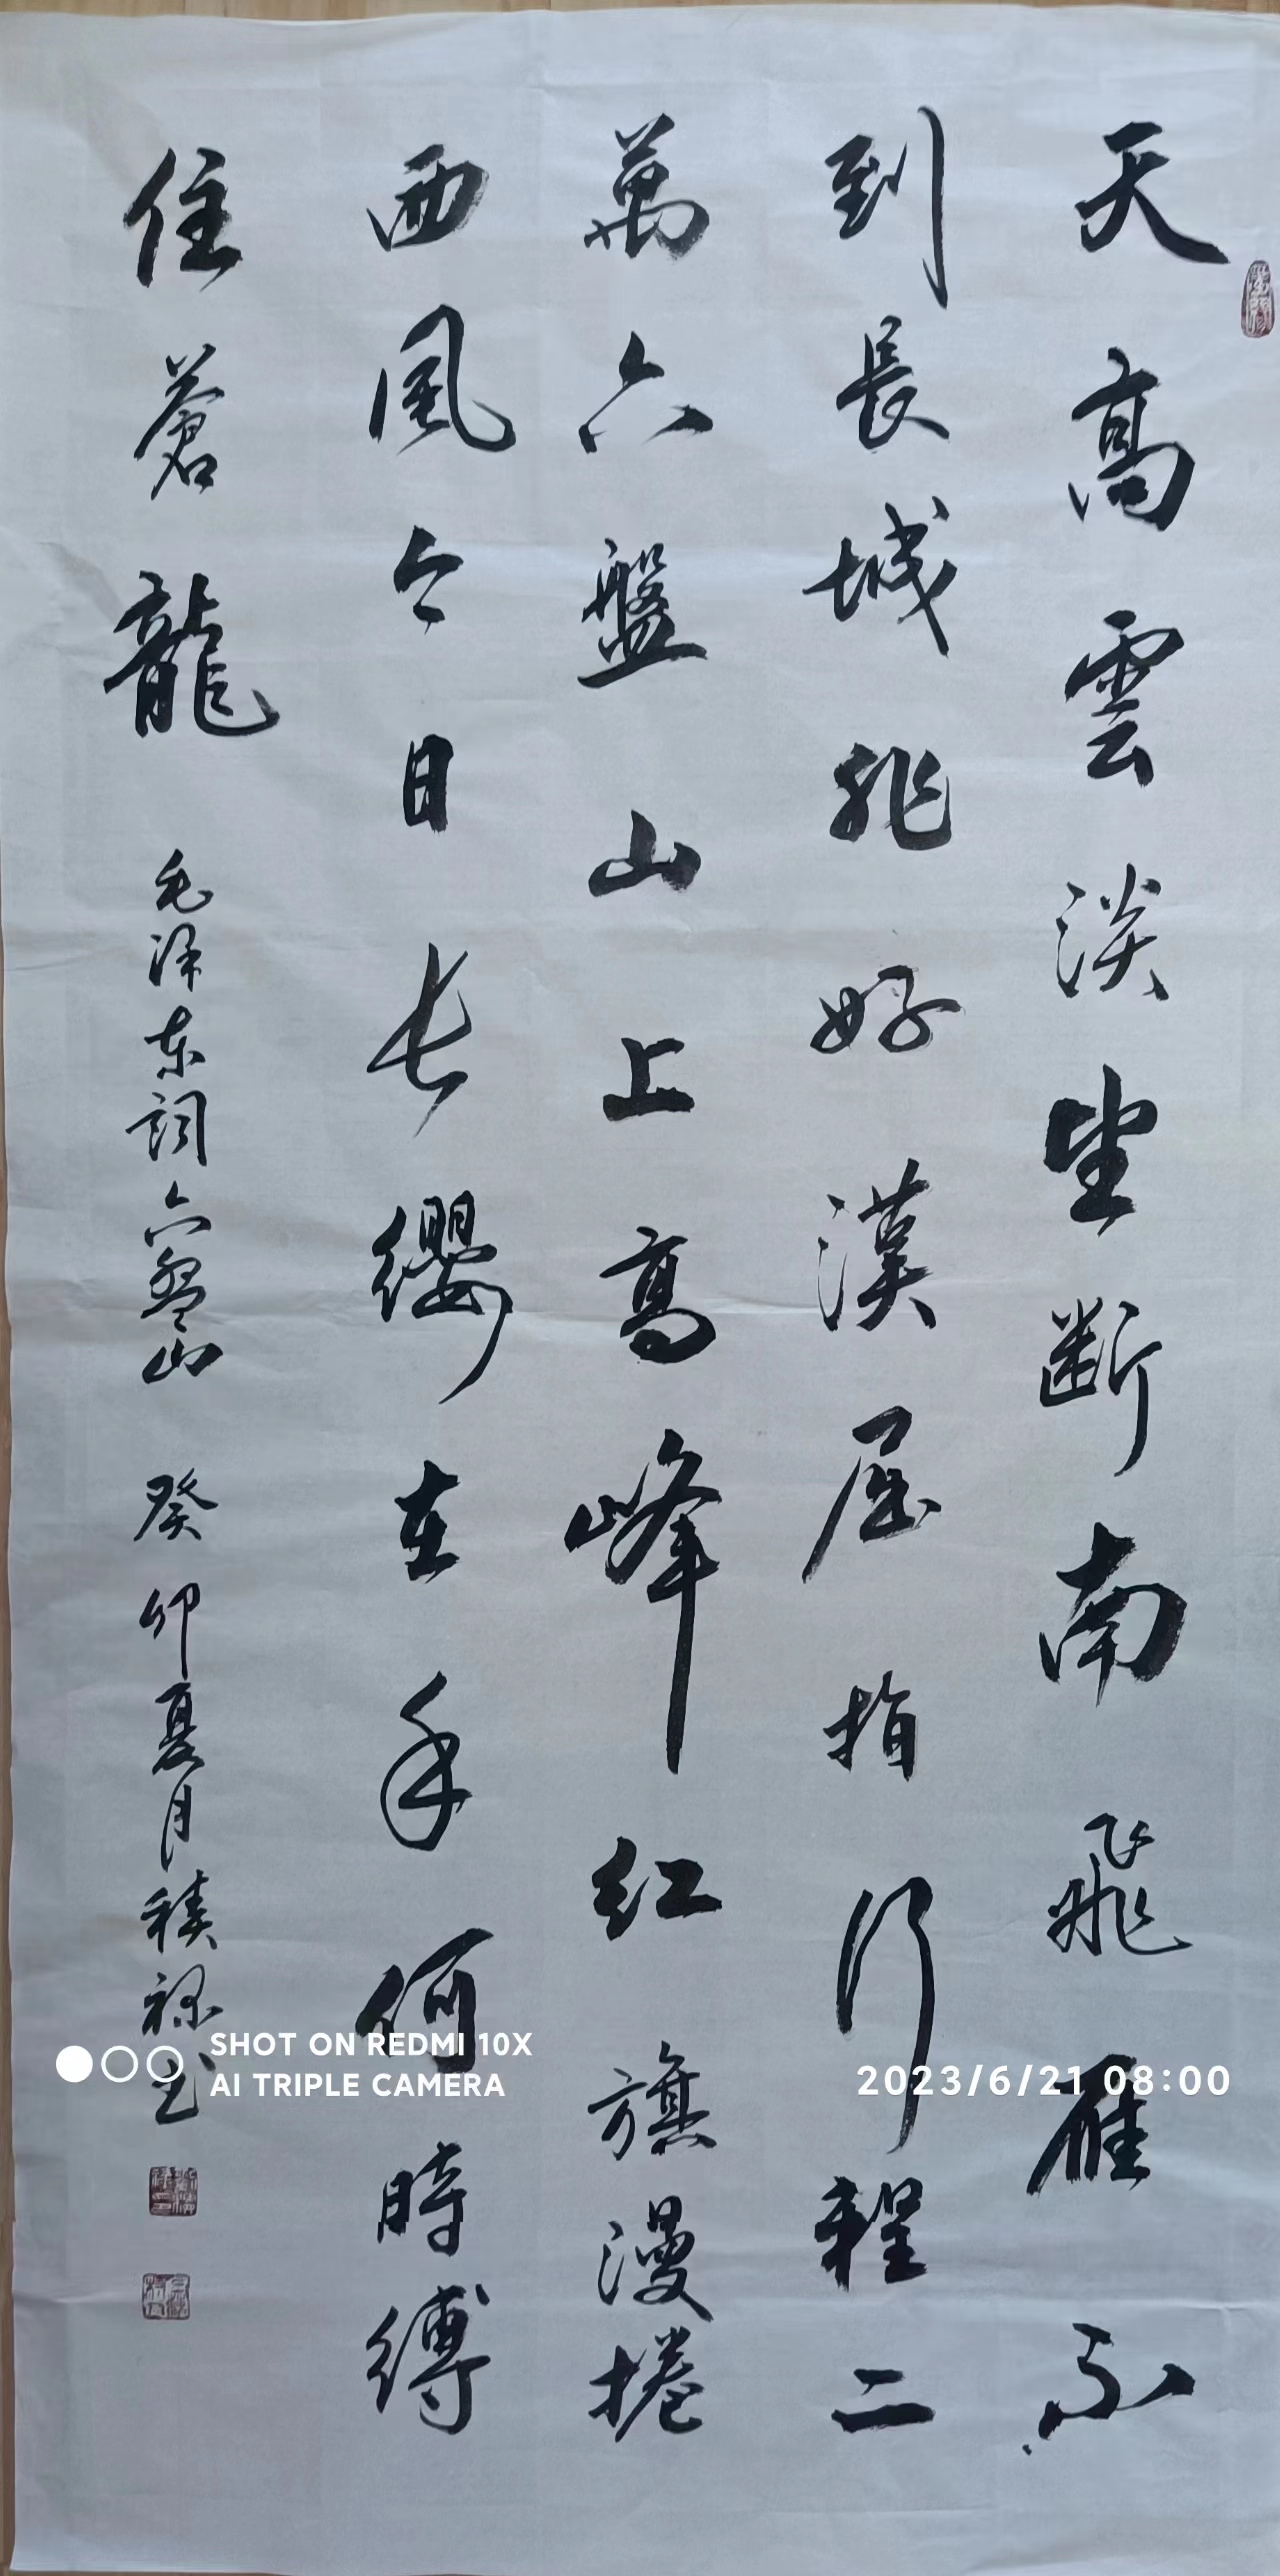 天高雲淡望断南飛雁不
到長城非好漢屈指行程二
萬六盤山上高峰红旗漫捲
西風今日长缨在手何時缚
住蒼龍
毛泽东词六盘山 癸卯夏月積禄书
SHOT ON REDMI 10X
AI TRIPLE CAMERA
2023/6/21 08:00